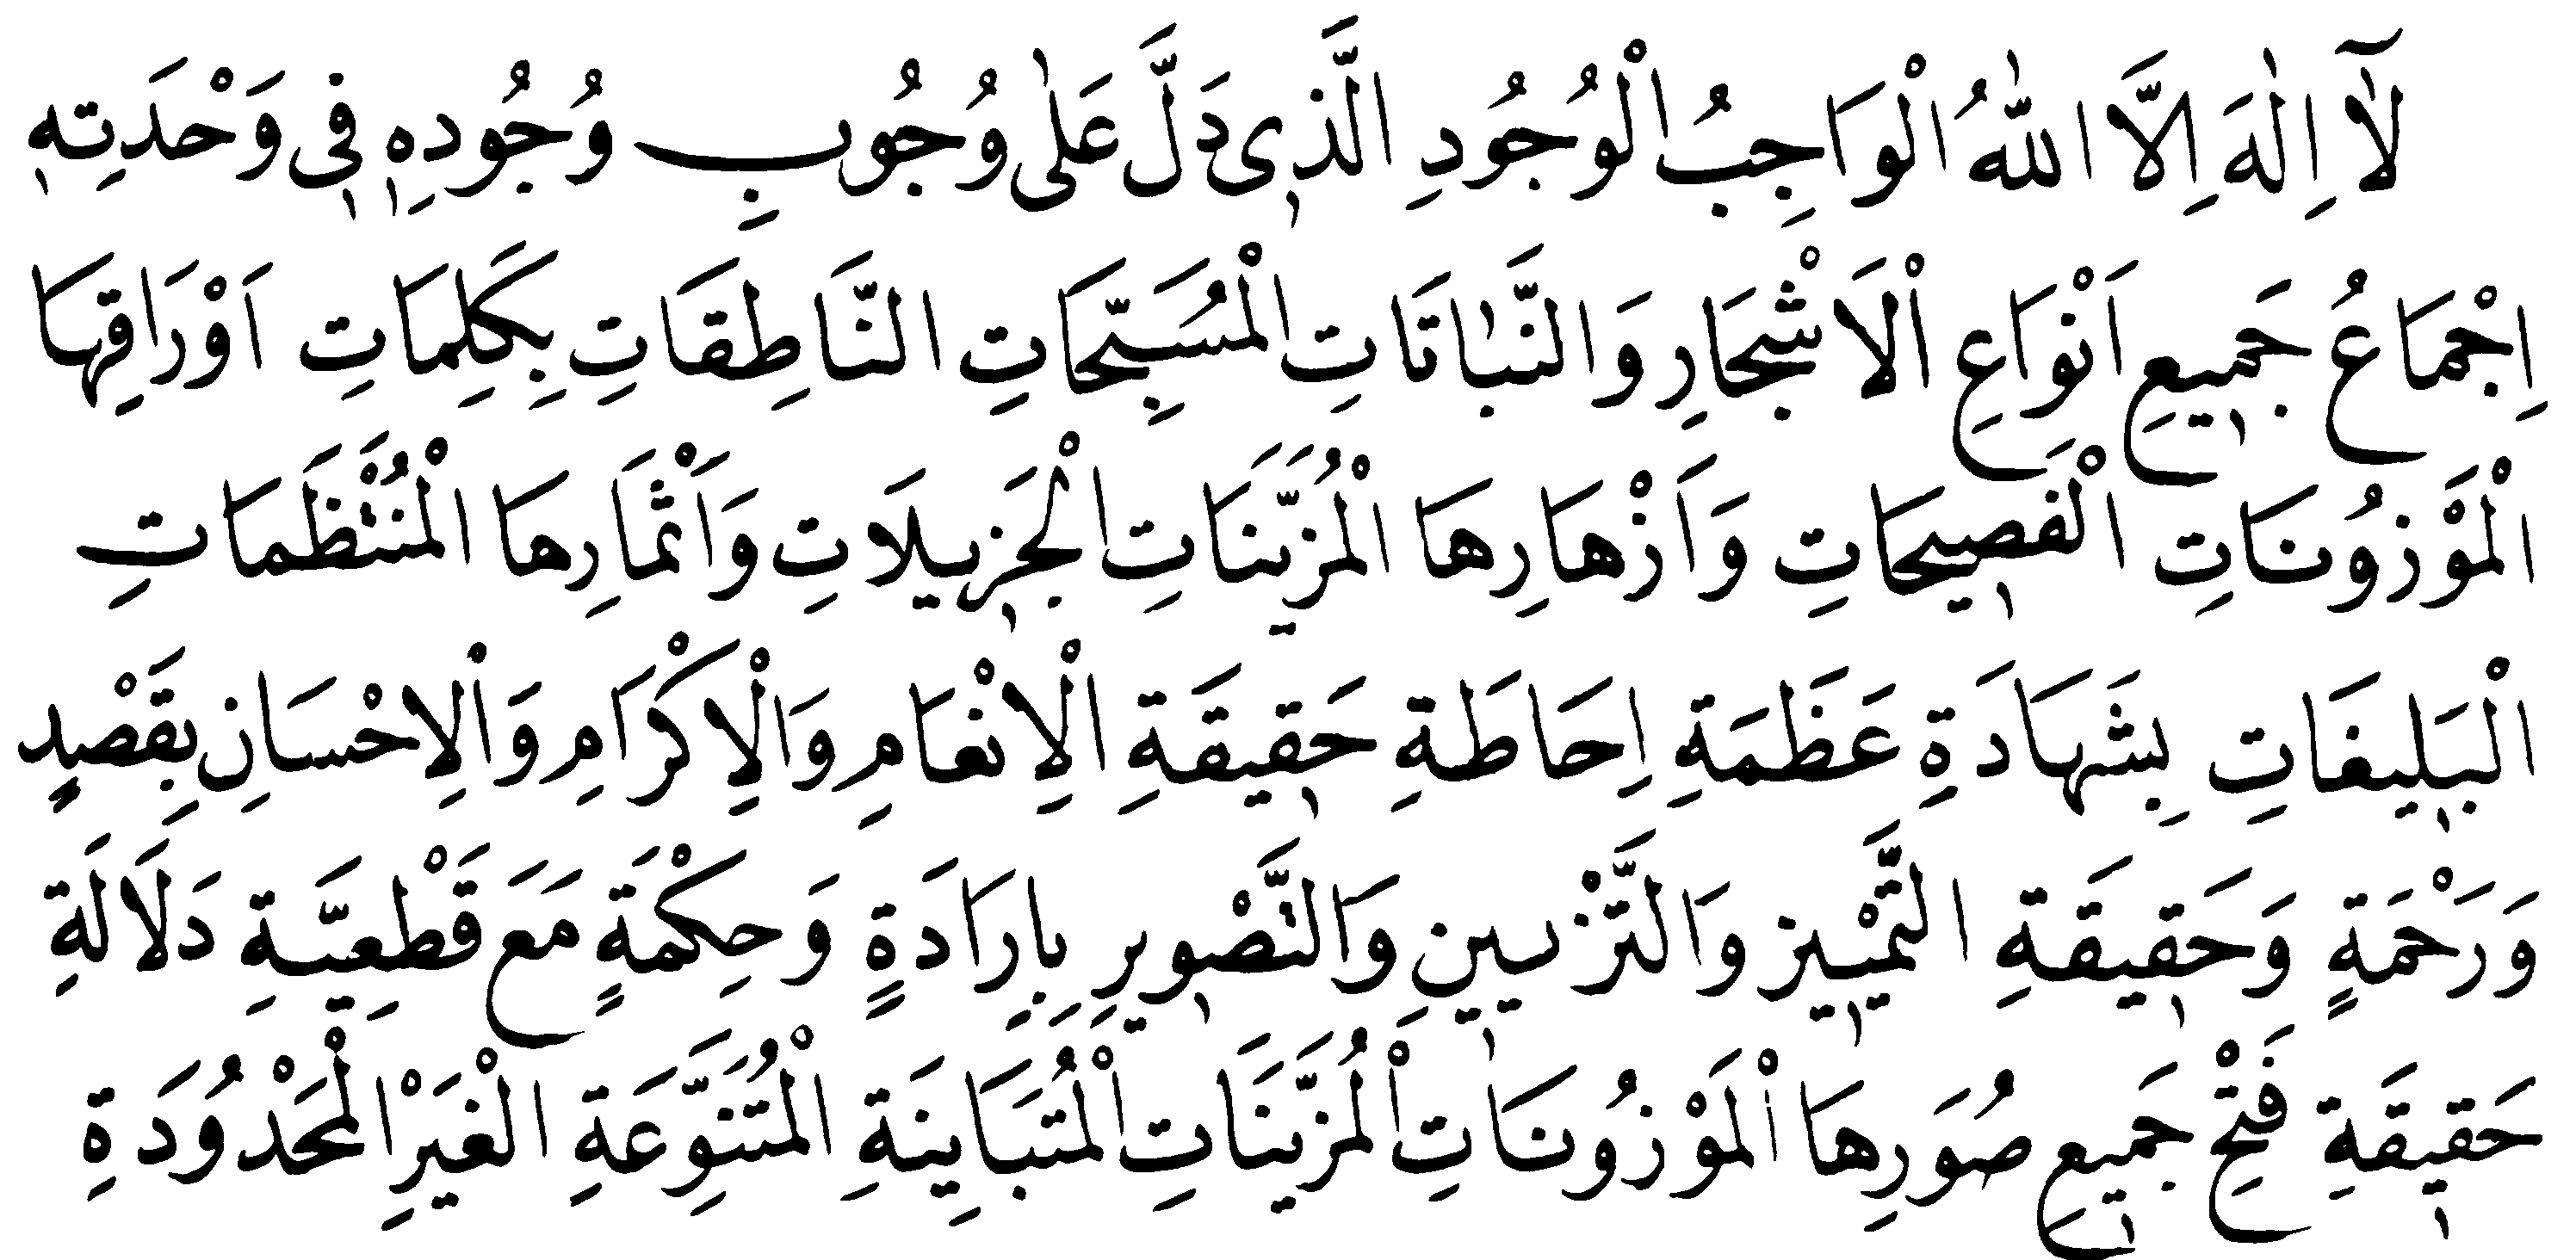 لَٓا اِلٰهَ اِلَّا اللّٰهُ الْوَاجِبُ الْوُجُودِ الَّذٖى دَلَّ عَلٰى وُجُوبِ وُجُودِهٖ فٖى وَحْدَتِهٖ
اِجْمَاعُ جَمٖيعِ اَنْوَاعِ الْاَشْجَارِ وَالنَّبَاتَاتِ الْمُسَبِّحَاتِ النَّاطِقَاتِ بِكَلِمَاتِ اَوْرَاقِهَا
الْمَوْزُونَاتِ الْفَصٖيحَاتِ وَاَزْهَارِهَا الْمُزَيَّنَاتِ الْجَزٖيلَاتِ وَاَثْمَارِهَا الْمُنْتَظَمَاتِ
الْبَلٖيغَاتِ بِشَهَادَةِ عَظَمَةِ اِحَاطَةِ حَقٖيقَةِ الْاِنْعَامِ وَالْاِكْرَامِ وَالْاِحْسَانِ بِقَصْدٍ
وَرَحْمَةٍ وَحَقٖيقَةِ التَّمْيٖيزِ وَالتَّزْيٖينِ وَالتَّصْوٖيرِ بِاِرَادَةٍ وَحِكْمَةٍ مَعَ قَطْعِيَّةِ دَلَالَةِ
حَقٖيقَةِ فَتْحِ جَمٖيعِ صُوَرِهَا الْمَوْزُونَاتِ الْمُزَيَّنَاتِ الْمُتَبَايِنَةِ الْمُتَنَوِّعَةِ الْغَيْرِ الْمَحْدُودَةِ